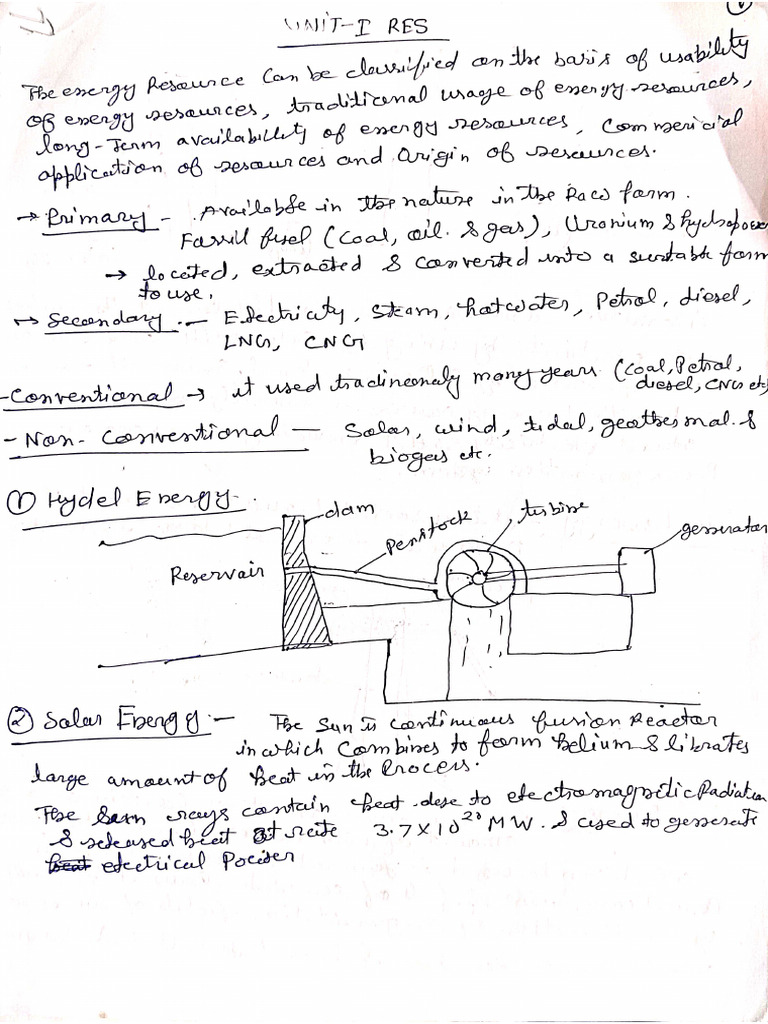 UNIT-I RES
The energy Resource Can be classified on the basis of usability
of energy resources, traditional usage of energy resources,
long-Term availability of energy resources, Commericial
application of resources and Origin of resources.
→ Primary - Available in the nature in the Raw form.
Fossil fuel (Coal, oil & gas), Uranium & hydropower
→ located, extracted & converted into a suitable form
to use.
→ Secondary - Electricity, Steam, hot water, Petrol, diesel,
LNG, CNG
- Conventional → it used tradineonaly many years (Coal, Petrol,
diesel, CNG etc)
- Non-Conventional - Solar, wind, tidal, geothermal &
biogas etc.
① Hydel Energy -
dam
Penstock
turbine
generator
Reservair
② Solar Energy - The Sun is continuous fusion Reactor
in which Combines to form helium & librates
large amount of heat in the Process.
The Sun rays contain heat due to electromagnetic Radiation
& released heat at rate 3.7 X 10²⁰ MW. & used to generate
electrical Power